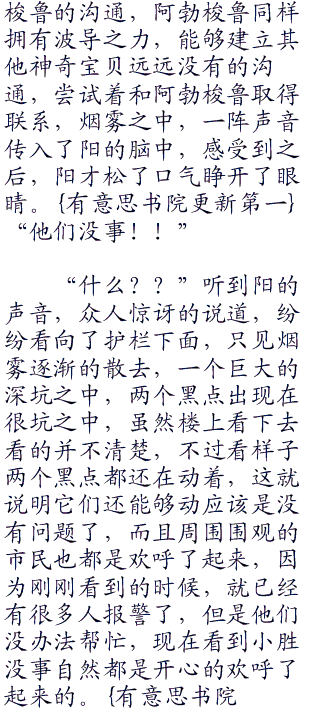 梭鲁的沟通，阿勃梭鲁同样
拥有波导之力，能够建立其
他神奇宝贝远远没有的沟
通，尝试着和阿勃梭鲁取得
联系，烟雾之中，一阵声音
传入了阳的脑中，感受到之
后，阳才松了口气睁开了眼
睛。{有意思书院更新第一}
“他们没事！！”
“什么？？”听到阳的
声音，众人惊讶的说道，纷
纷看向了护栏下面，只见烟
雾逐渐的散去，一个巨大的
深坑之中，两个黑点出现在
很坑之中，虽然楼上看下去
看的并不清楚，不过看样子
两个黑点都还在动着，这就
说明它们还能够动应该是没
有问题了，而且周围围观的
市民也都是欢呼了起来，因
为刚刚看到的时候，就已经
有很多人报警了，但是他们
没办法帮忙，现在看到小胜
没事自然都是开心的欢呼了
起来的。{有意思书院